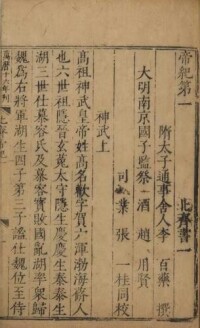 帝紀第一
北齊書一
隋太子通事舍人李百藥撰
大明南京國子監祭酒趙用賢
司業張一桂同校
神武上
高祖神武皇帝姓高名歡字賀六渾渤海蓨人
也六世祖隱晉玄菟太守隱生慶慶生泰泰生
湖三世仕慕容氏及慕容寶敗國亂湖率衆歸
魏爲右將軍湖生四子第三子謐仕魏位至侍
萬曆十六年刊